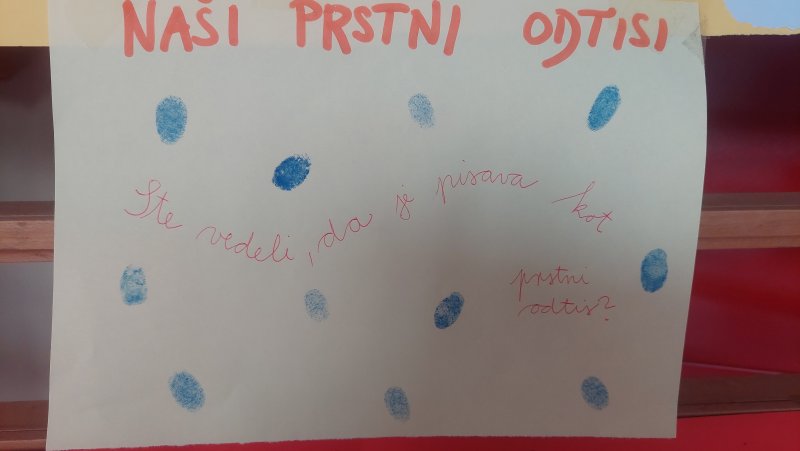 NAŠI PRSTNI ODTISI
Ste vedeli, da je pisava kot
prstni
odtis?